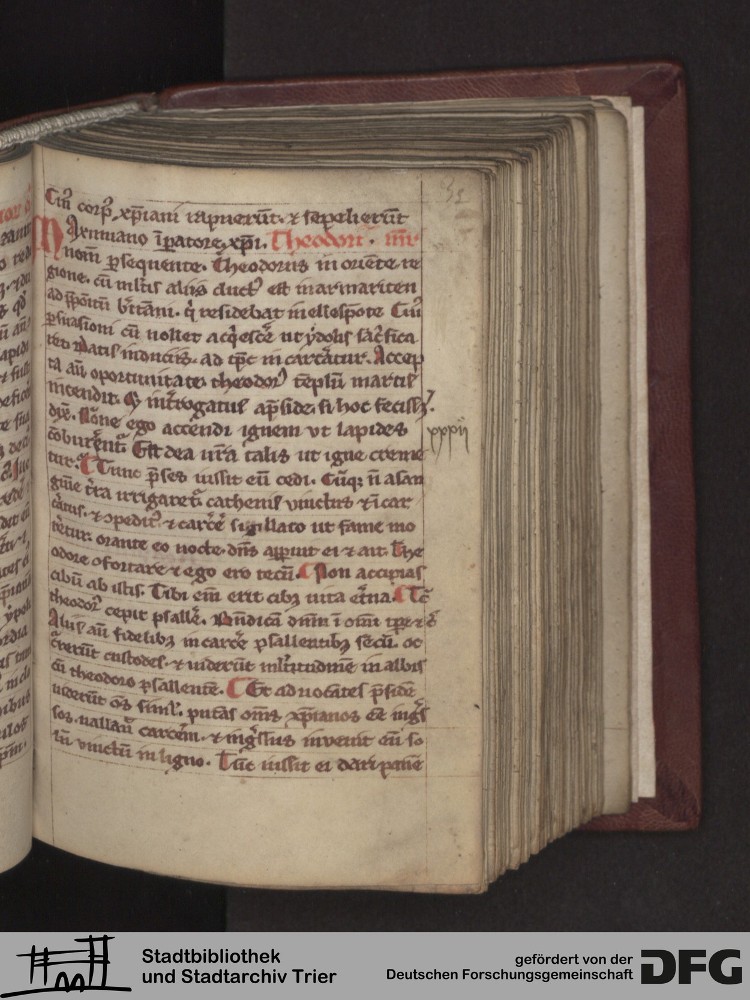 52
Cui⁹ corp⁹ xp̄iani rapuerūt ⁊ sepelierūt
Maximiano īp̄atore xp̄i. Theodori · mr̄
nom̄ p̱sequente. Theodorus in oriēte re
gione. cū ml̄tis aliis duct⁹ est in marmariten
ad p̄positū br̄tani. q̇ residebat in ellespōte Cui⁹
p̱suasioni cū nollet acq̇escē ut ydolis sac̄fica
ret datis induciis. ad tp̄c in carcātur. Accep
ta aū oportunitate theodor⁹ tēplū martis
incendit. Et int̄rogatus a p̄side. si hoc fecisz.
dix̄. None ego accendi ignem vt lapides
xxxii
cōburent͛. Est dea vr̄a talis ut igne creme
tur. Tunc p̄ses iussit eū cedi. Cūq; n̄ a san
guīe t̄ra irrigaret͛ cathenis vinctus ⁊ īcar
c̄atus. ⁊ 9pedit⁹. ⁊ carcē sigillato ut fame mo
reretur. orante eo nocte. dn̄s apparuit ei ⁊ ait. The
odore 9fortare ⁊ ego ero tecū. Non accipias
cibū ab istis. Tibi eni erit cib; uita et̄na. Tc̄
theodor⁹ cepit psallē. Bn̄dicā dnm ī omi tp̱re ⁊ c̄
Aliis aū fidelib; in carcē psallentib; secū. oc
c̄rerūt custodes. ⁊ uiderūt ml̄titudinē in albis
cū theodoro psallentē. Et aduocātes p̄sidē
uiderūt oēs simil͛. putās om̄s xp̄ianos eē ingr̄s
sos. uallauit carcēm. ⁊ ingr̄ssus inuenit eū so
lū vinctū in ligno. Tūc iussit ei dari panē
Stadtbibliothek
und Stadtarchiv Trier
gefördert von der
Deutschen Forschungsgemeinschaft
DFG